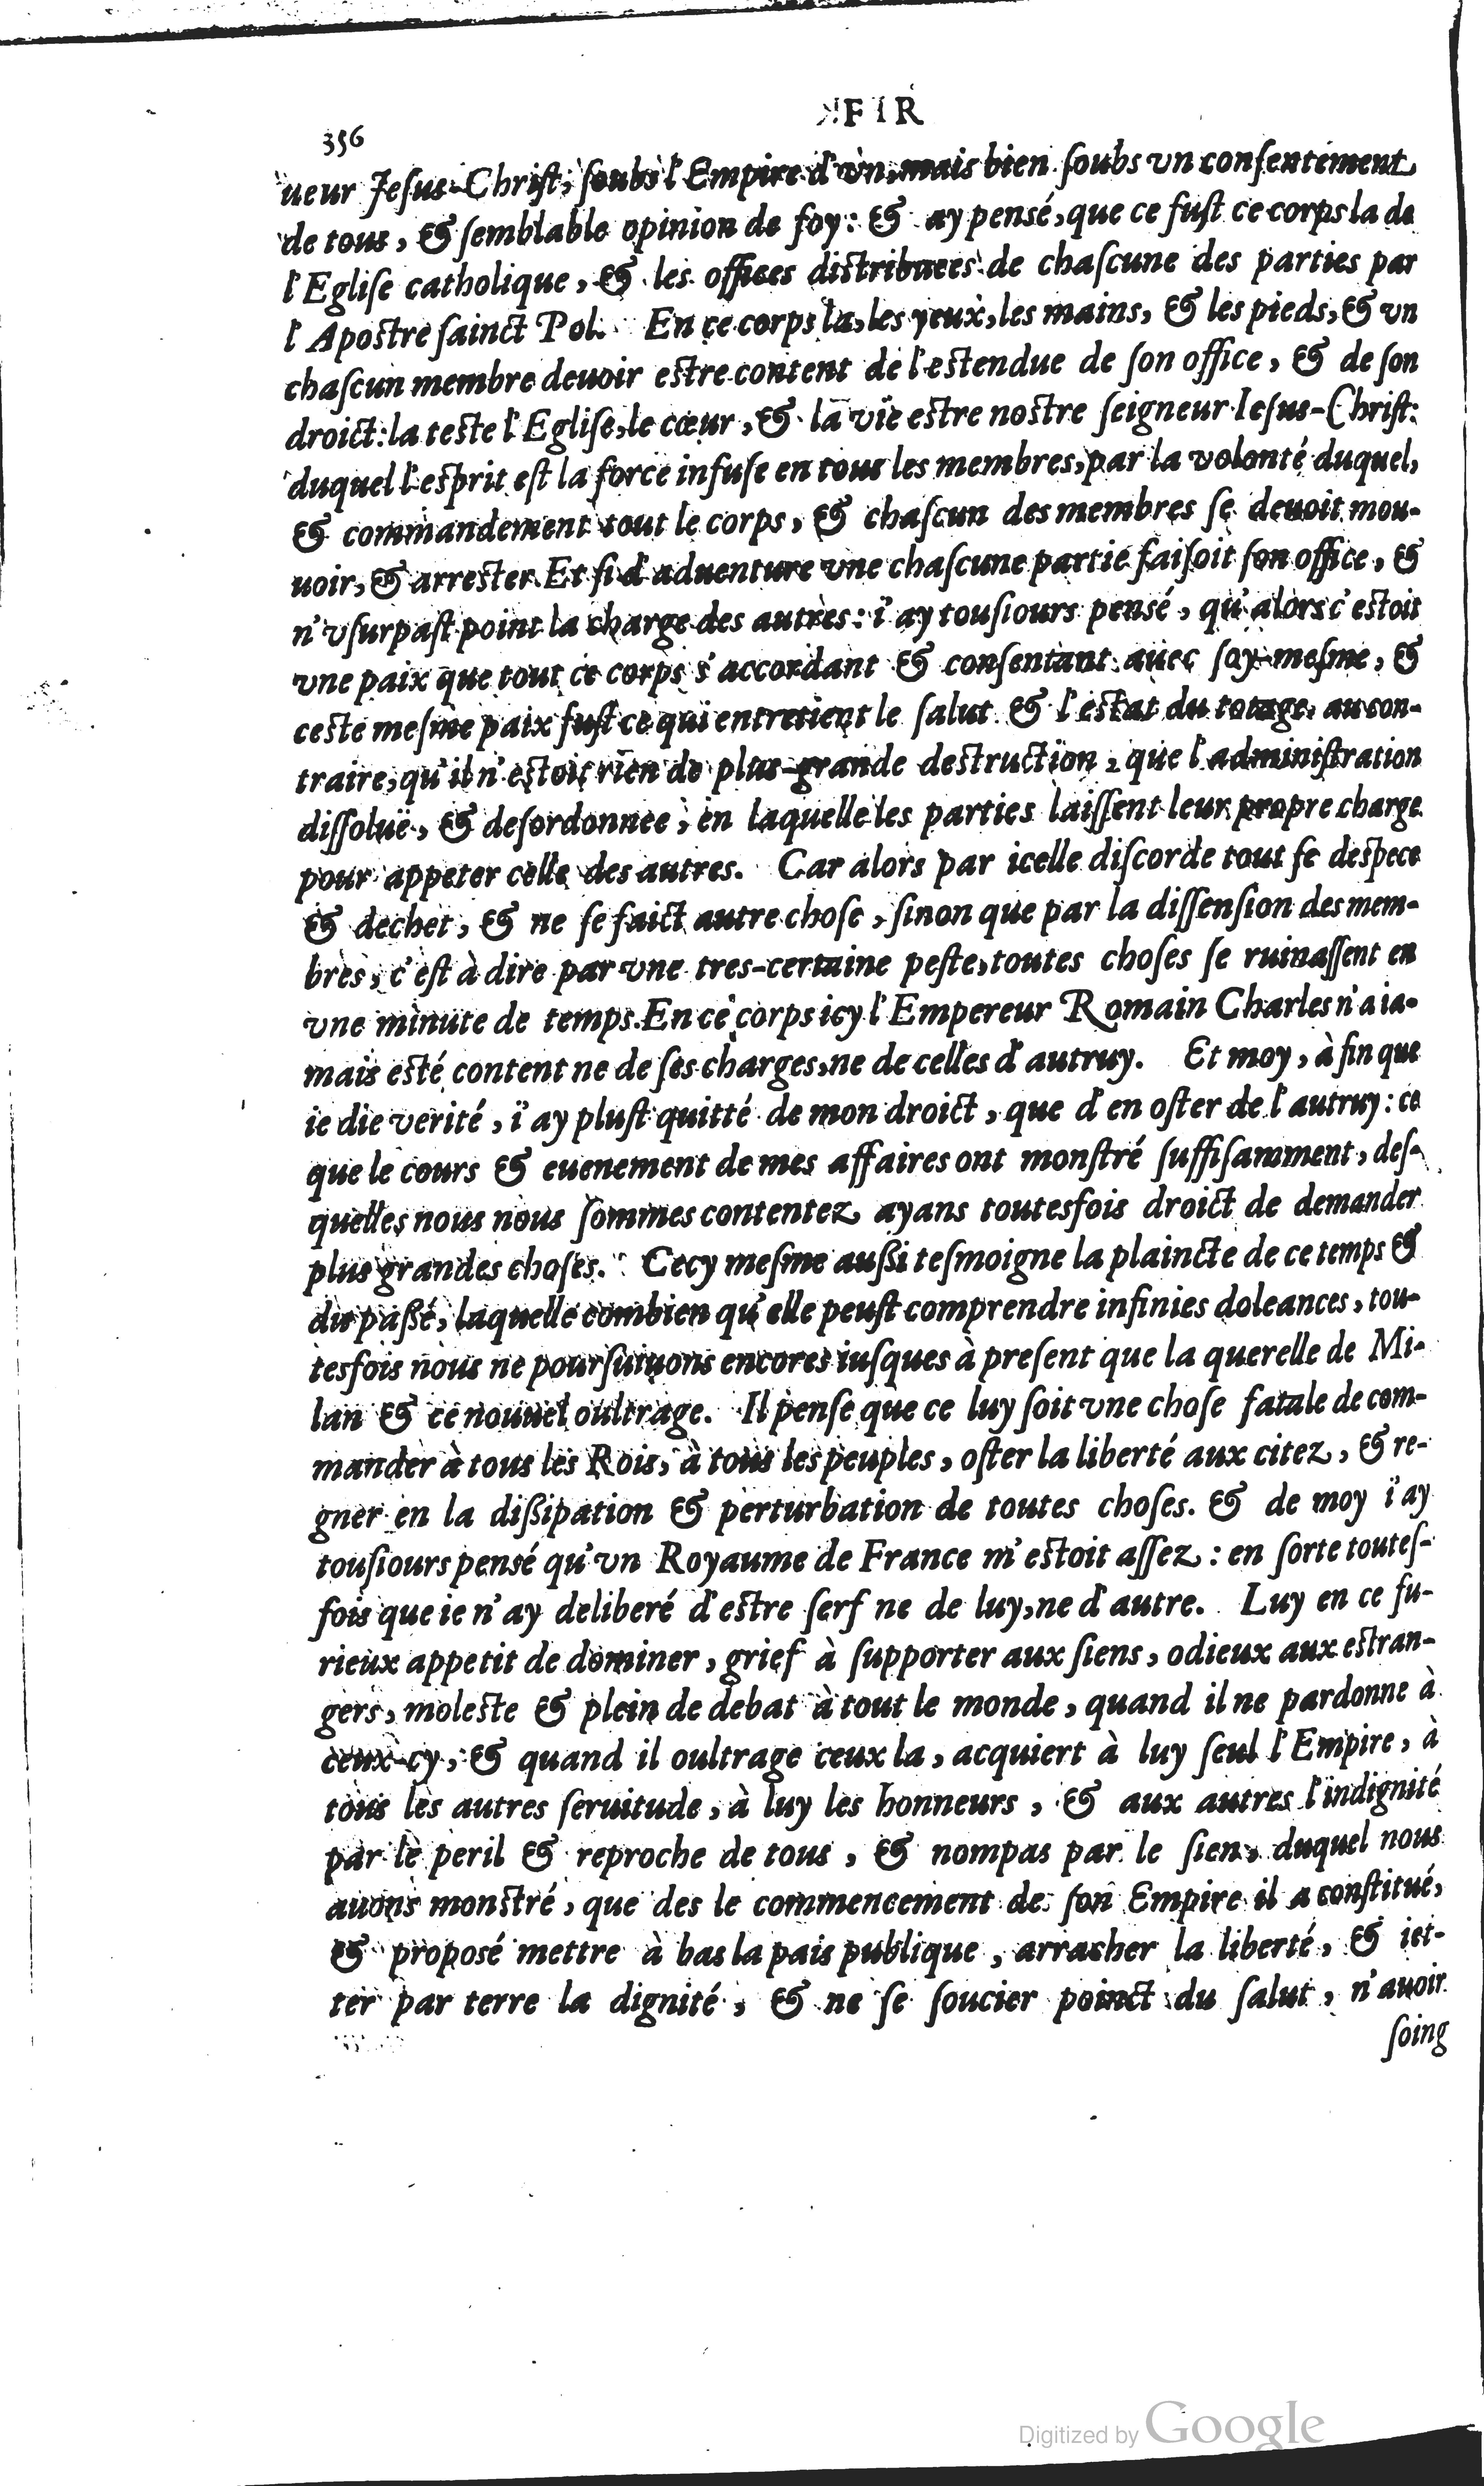 FIR
356
ueur Jeſus-Chriſt, ſoubs l'Empire d'vn, mais bien ſoubs vn conſentement
de tous, & ſemblable opinion de foy: & ay penſé, que ce fuſt ce corps la de
l'Egliſe catholique, & les offices distribuees de chaſcune des parties par
l'Apostre ſainct Pol. En ce corps la, les yeux, les mains, & les pieds, & vn
chaſcun membre deuoir estre content de l'estendue de ſon office, & de ſon
droict: la teste l'Egliſe, le cœur, & la vie estre nostre ſeigneur Ieſus-Chriſt:
duquel l'esprit eſt la force infuſe en tous les membres, par la volonté duquel,
& commandement tout le corps, & chaſcun des membres ſe deuoit mou-
uoir, & arrester. Et ſi d'aduenture vne chaſcune partie faiſoit ſon office, &
n'vſurpaſt point la charge des autres: i'ay touſiours penſé, qu'alors c'estoit
vne paix que tout ce corps s'accordant & conſentant auec ſoy-meſme, &
ceste meſme paix fuſt ce qui entretient le ſalut & l'estat du totage. au con-
traire, qu'il n'estoit rien de plus grande destruction, que l'adminiſtration
diſſoluë, & deſordonnee, en laquelle les parties laiſſent leur propre charge
pour appeter celle des autres. Car alors par icelle diſcorde tout ſe despece
& dechet, & ne ſe faict autre choſe, ſinon que par la diſſenſion des mem-
bres, c'eſt à dire par vne tres-certaine peſte, toutes choſes ſe ruinaſſent en
vne minute de temps. En ce corps icy l'Empereur Romain Charles n'a ia-
mais esté content ne de ſes charges, ne de celles d'autruy. Et moy, à fin que
ie die verité, i'ay pluſt quitté de mon droict, que d'en oſter de l'autruy: ce
que le cours & euenement de mes affaires ont monſtré ſuffiſamment, deſ-
quelles nous nous ſommes contentez ayans toutesfois droict de demander
plus grandes choſes. Cecy meſme außi teſmoigne la plaincte de ce temps &
du paßé, laquelle combien qu'elle peuſt comprendre infinies doleances, tou-
tesfois nous ne pourſuiuons encores iuſques à preſent que la querelle de Mi-
lan & ce nouuel oultrage. Il penſe que ce luy ſoit vne choſe fatale de com-
mander à tous les Rois, à tous les peuples, oſter la liberté aux citez, & re-
gner en la dißipation & perturbation de toutes choſes. & de moy i'ay
touſiours penſé qu'vn Royaume de France m'estoit aſſez: en ſorte touteſ-
fois que ie n'ay deliberé d'estre ſerf ne de luy, ne d'autre. Luy en ce fu-
rieux appetit de dominer, grief à ſupporter aux ſiens, odieux aux estran-
gers, moleste & plein de debat à tout le monde, quand il ne pardonne à
ceux-cy, & quand il oultrage ceux la, acquiert à luy ſeul l'Empire, à
tous les autres ſeruitude, à luy les honneurs, & aux autres l'indignité
par le peril & reproche de tous, & nompas par le ſien, duquel nous
auons monstré, que des le commencement de ſon Empire il a conſtitué,
& propoſé mettre à bas la pais publique, arracher la liberté, & iet-
ter par terre la dignité, & ne ſe ſoucier poinct du ſalut, n'auoir
ſoing
Digitized by Google